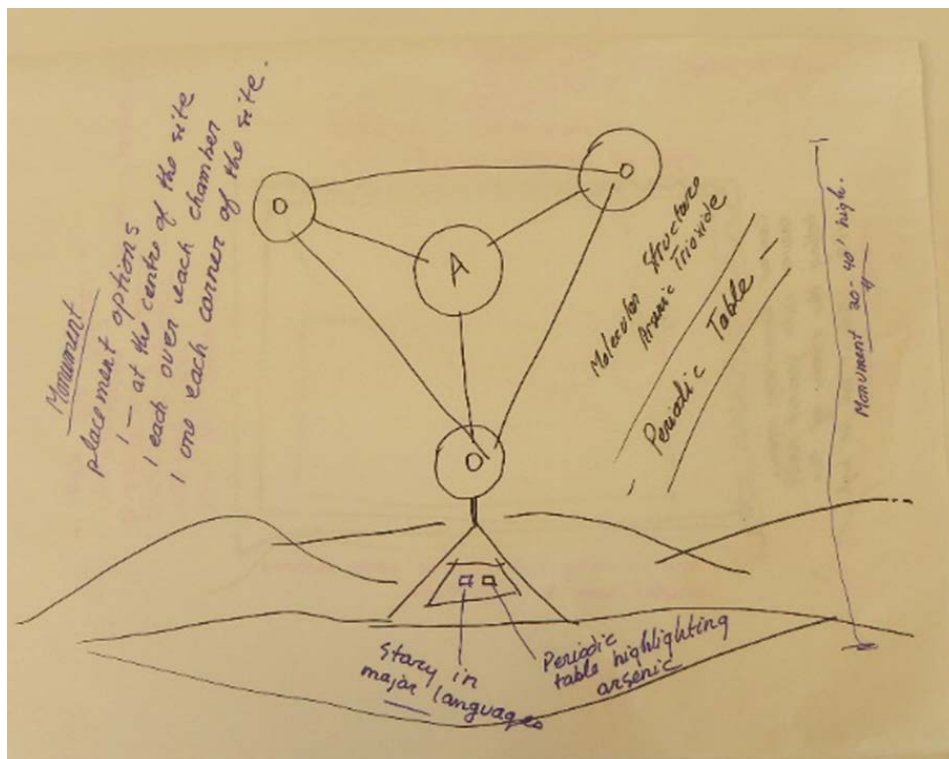 Monument
placement options
1 — at the centre of the site
1 each over each chamber
1 one each corner of the site.
O
O
A
O
Molecular Structure
Arsenic Trioxide
Periodic Table
Monument 30-40' high.
Story in
major languages
Periodic
table highlighting
arsenic